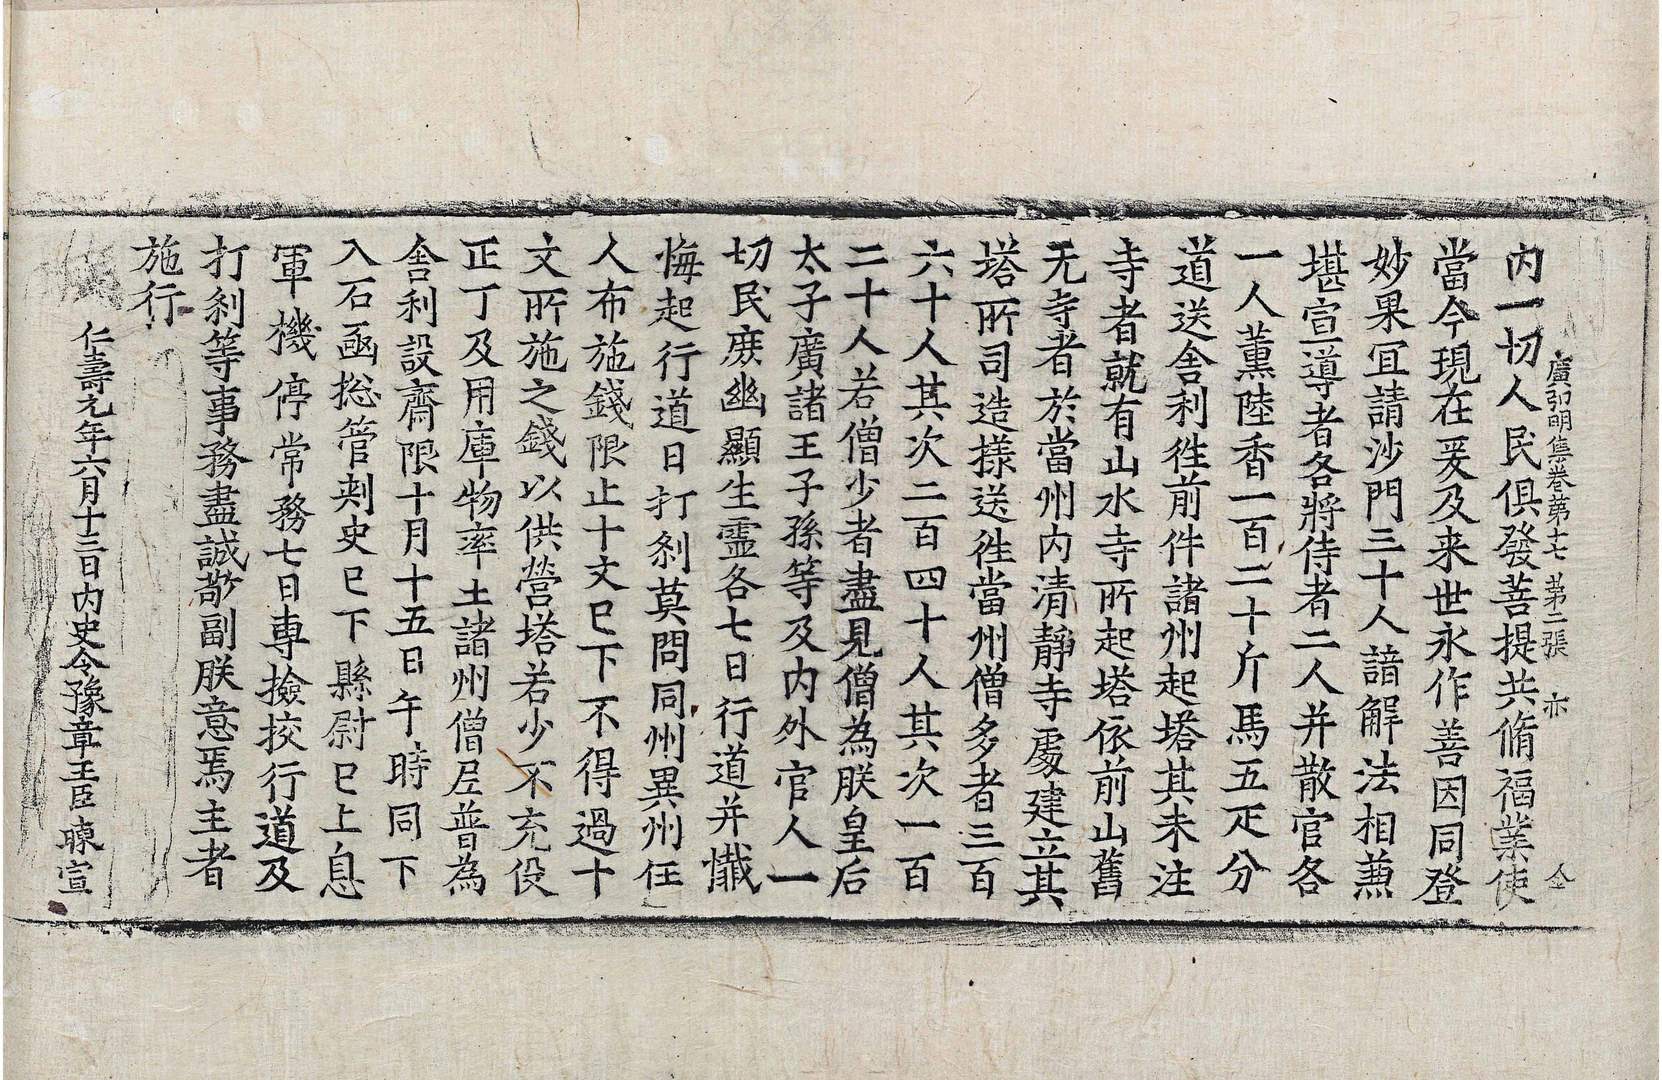 廣弘明集卷第十七 第二張 亦 全
内一切人民俱發菩提共脩福業使
當今現在爰及来世永作善因同登
妙果宜請沙門三十人諳解法相兼
堪宣導者各將侍者二人并散官各
一人薰陸香一百二十斤馬五疋分
道送舎利徃前件諸州起塔其未注
寺者就有山水寺所起塔依前山舊
无寺者於當州内清靜寺處建立其
塔所司造㨾送徃當州僧多者三百
六十人其次二百四十人其次一百
二十人若僧少者盡見僧為朕皇后
太子廣諸王子孫等及内外官人一
切民庻幽顯生霊各七日行道并懺
悔起行道日打刹莫問同州異州任
人布施錢限止十文已下不得過十
文所施之錢以供營塔若少不充役
正丁及用庫物率土諸州僧尼普為
舎利設齋限十月十五日午時同下
入石函捴管刺史已下縣尉已上息
軍機停常務七日専撿挍行道及
打刹等事務盡誠敬副朕意焉主者
施行
仁壽元年六月十三日内史令豫章王臣暕宣